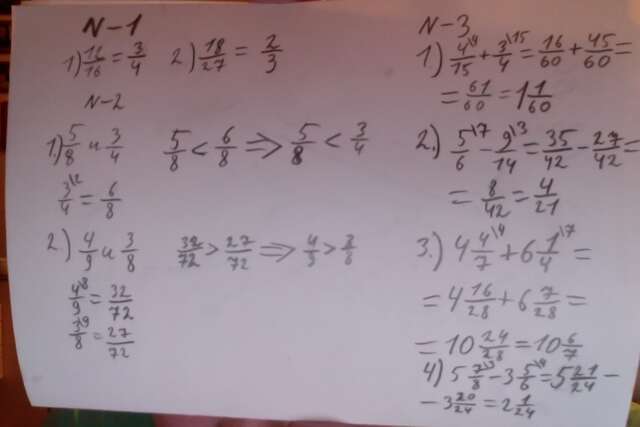 N-1
1) 12/16 = 3/4 2) 18/27 = 2/3
N-2
1.) 5/8 и 3/4 5/8 < 6/8 ⇒ 5/8 < 3/4
3\2/4 = 6/8
2.) 4/9 и 3/8 32/72 > 27/72 ⇒ 4/9 > 3/8
4\8/9 = 32/72
3\9/8 = 27/72
N-3
1) 4\4/15 + 3\15/4 = 16/60 + 45/60 =
= 61/60 = 1 1/60
2.) 5\7/6 - 9\3/14 = 35/42 - 27/42 =
= 8/42 = 4/21
3.) 4 4\4/7 + 6 1\7/4 =
= 4 16/28 + 6 7/28 =
= 10 24/28 = 10 6/7
4) 5 7\3/8 - 3 5\4/6 = 5 21/24 -
- 3 20/24 = 2 1/24